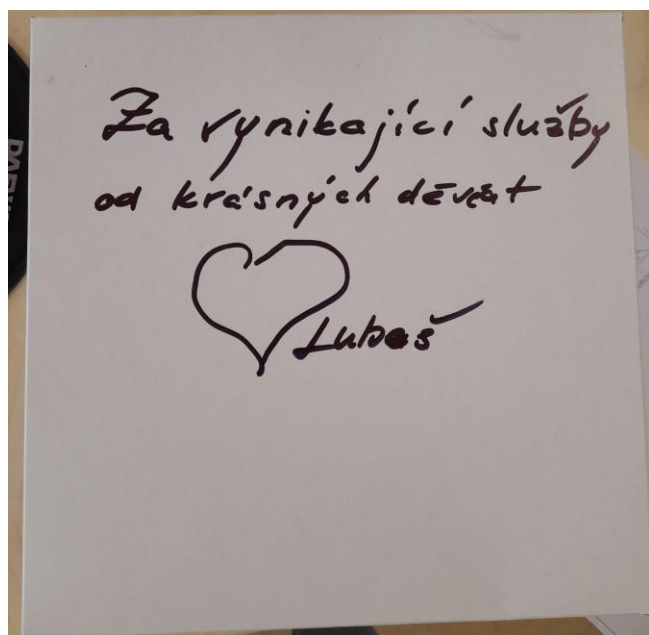 Za vynikající služby
od krásných děvčat
Luboš